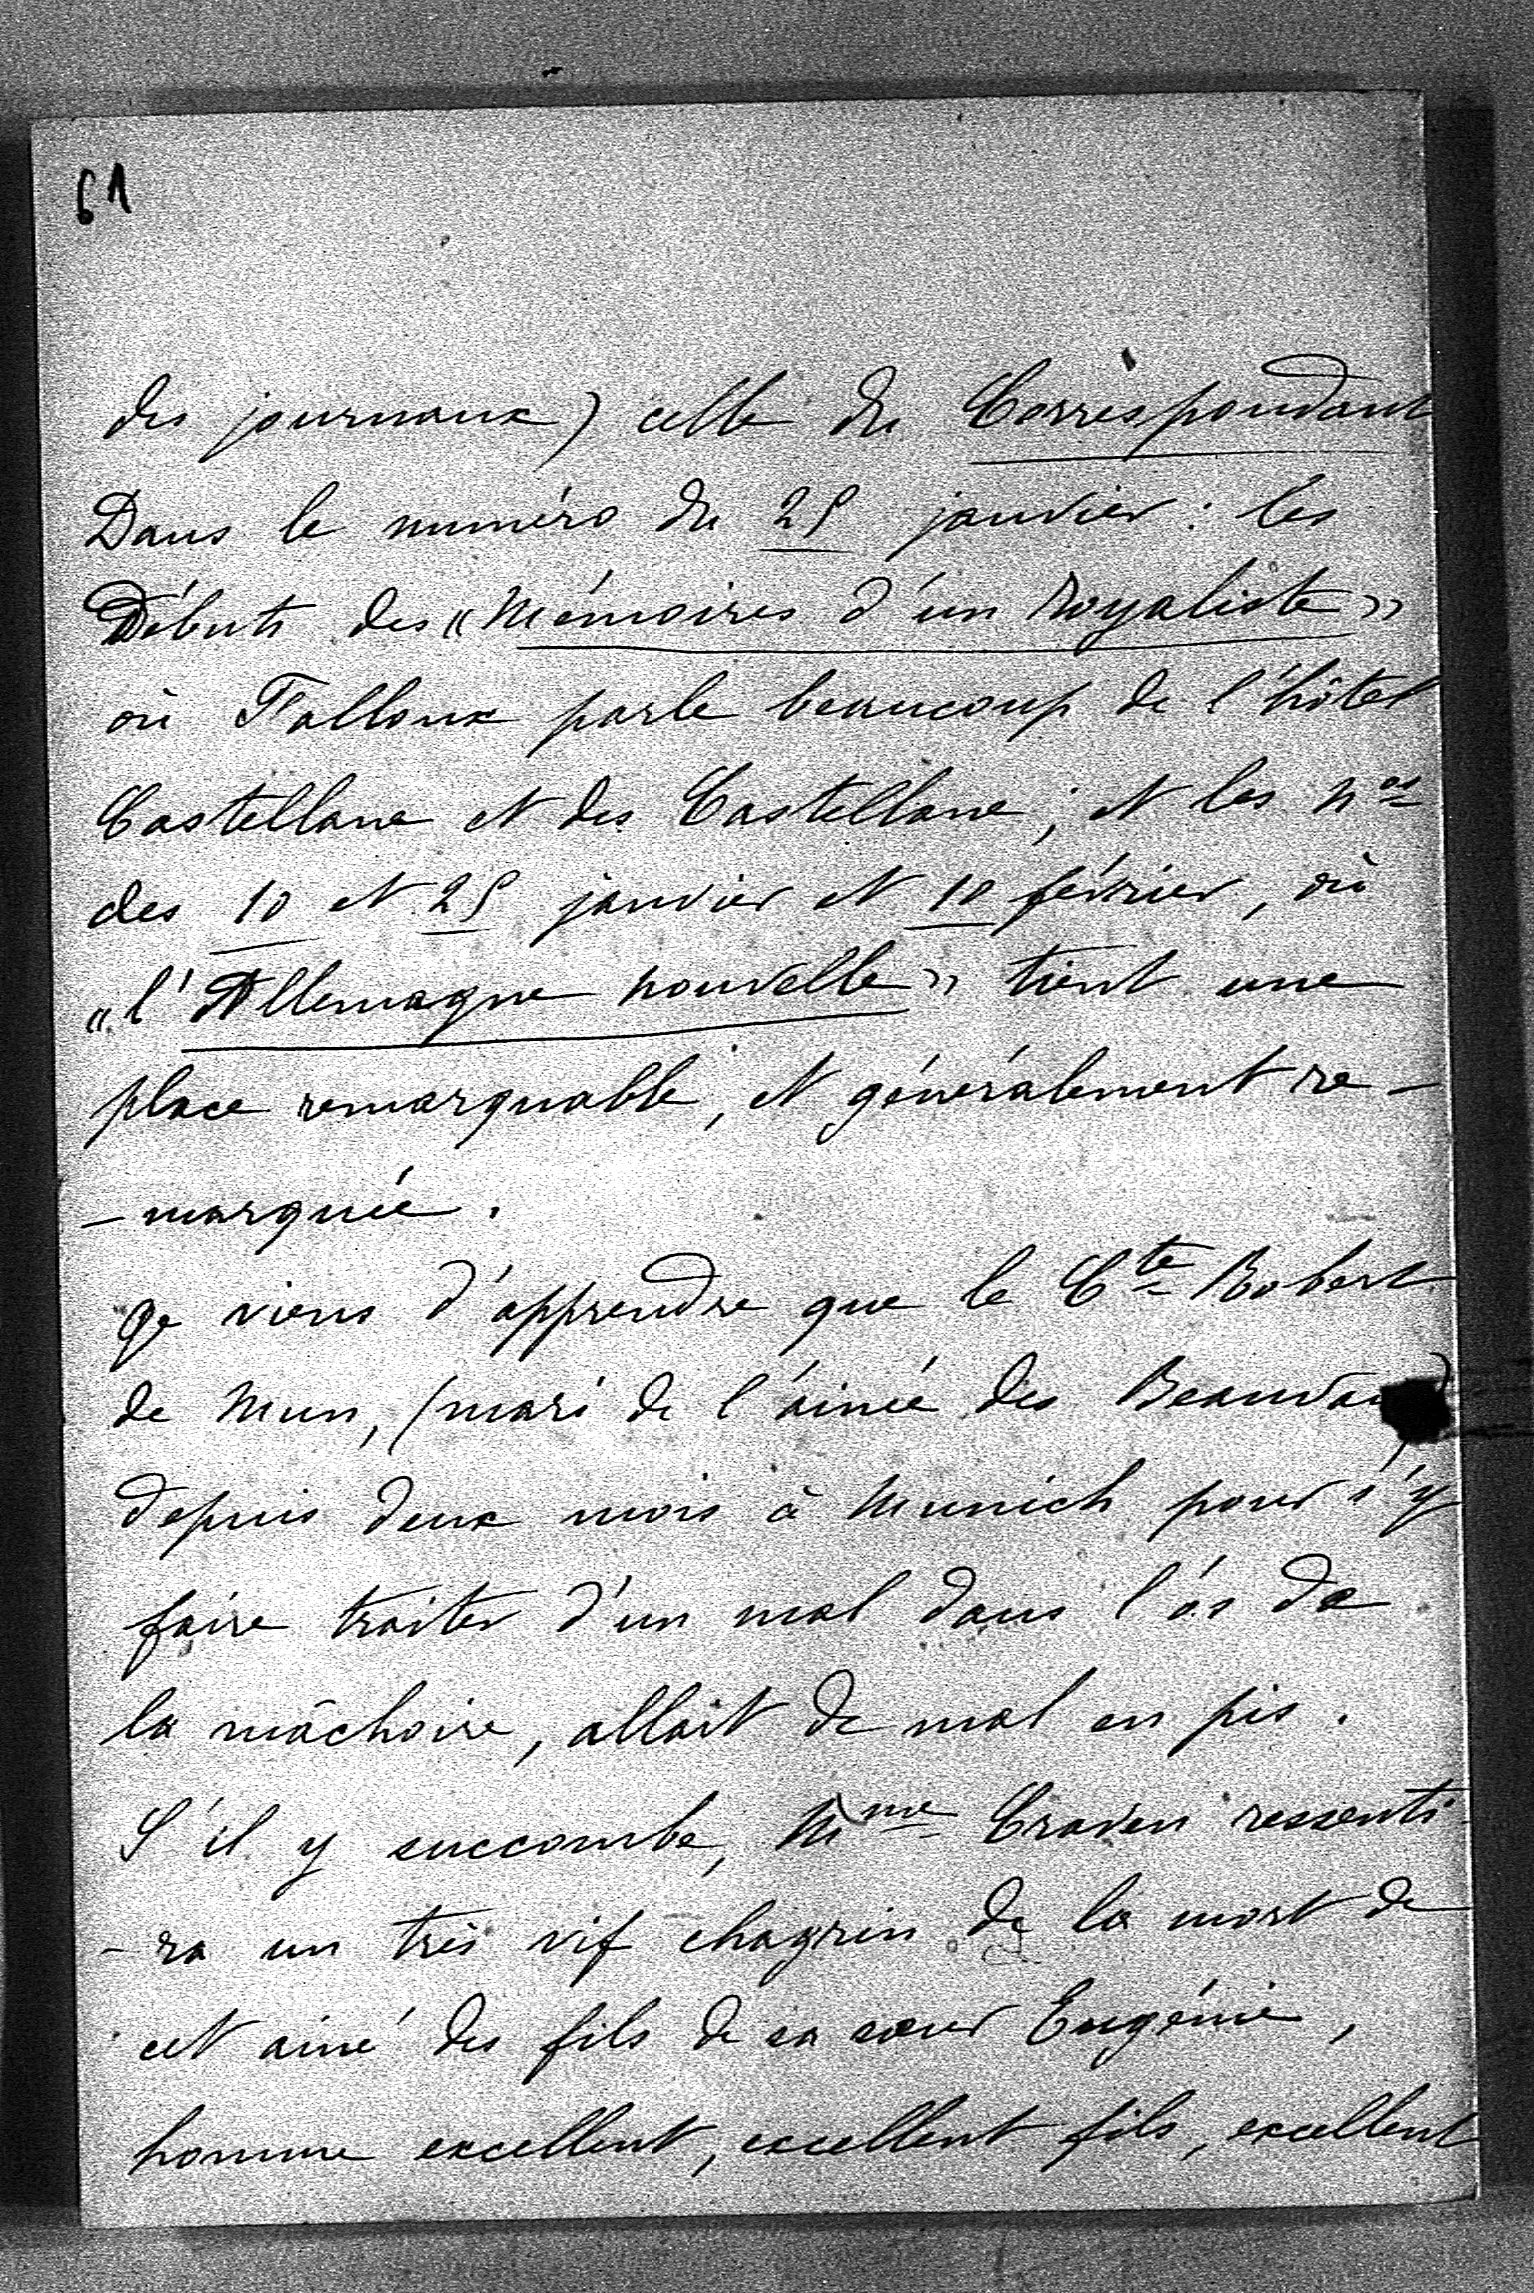 61
des journaux) celle du Correspondant
Dans le numéro du 25 janvier : les
Débuts des « Mémoires d'un Royaliste »
où Falloux parle beaucoup de l'hôtel
Castellane et des Castellane ; et les nos
des 10 et 25 janvier et 10 février, où
« l'Allemagne nouvelle » tient une
place remarquable, et généralement re-
-marquée.
Je viens d'apprendre que le Cte Robert
de Mun, (mari de l'ainée des Beauvau)
depuis deux mois à Munich pour s'y
faire traiter d'un mal dans l'os de
la mâchoire, allait de mal en pis.
S'il y succombe, Mme Craven ressenti-
-ra un très vif chagrin de la mort de
cet ainé des fils de sa sœur Eugénie,
homme excellent, excellent fils, excellent